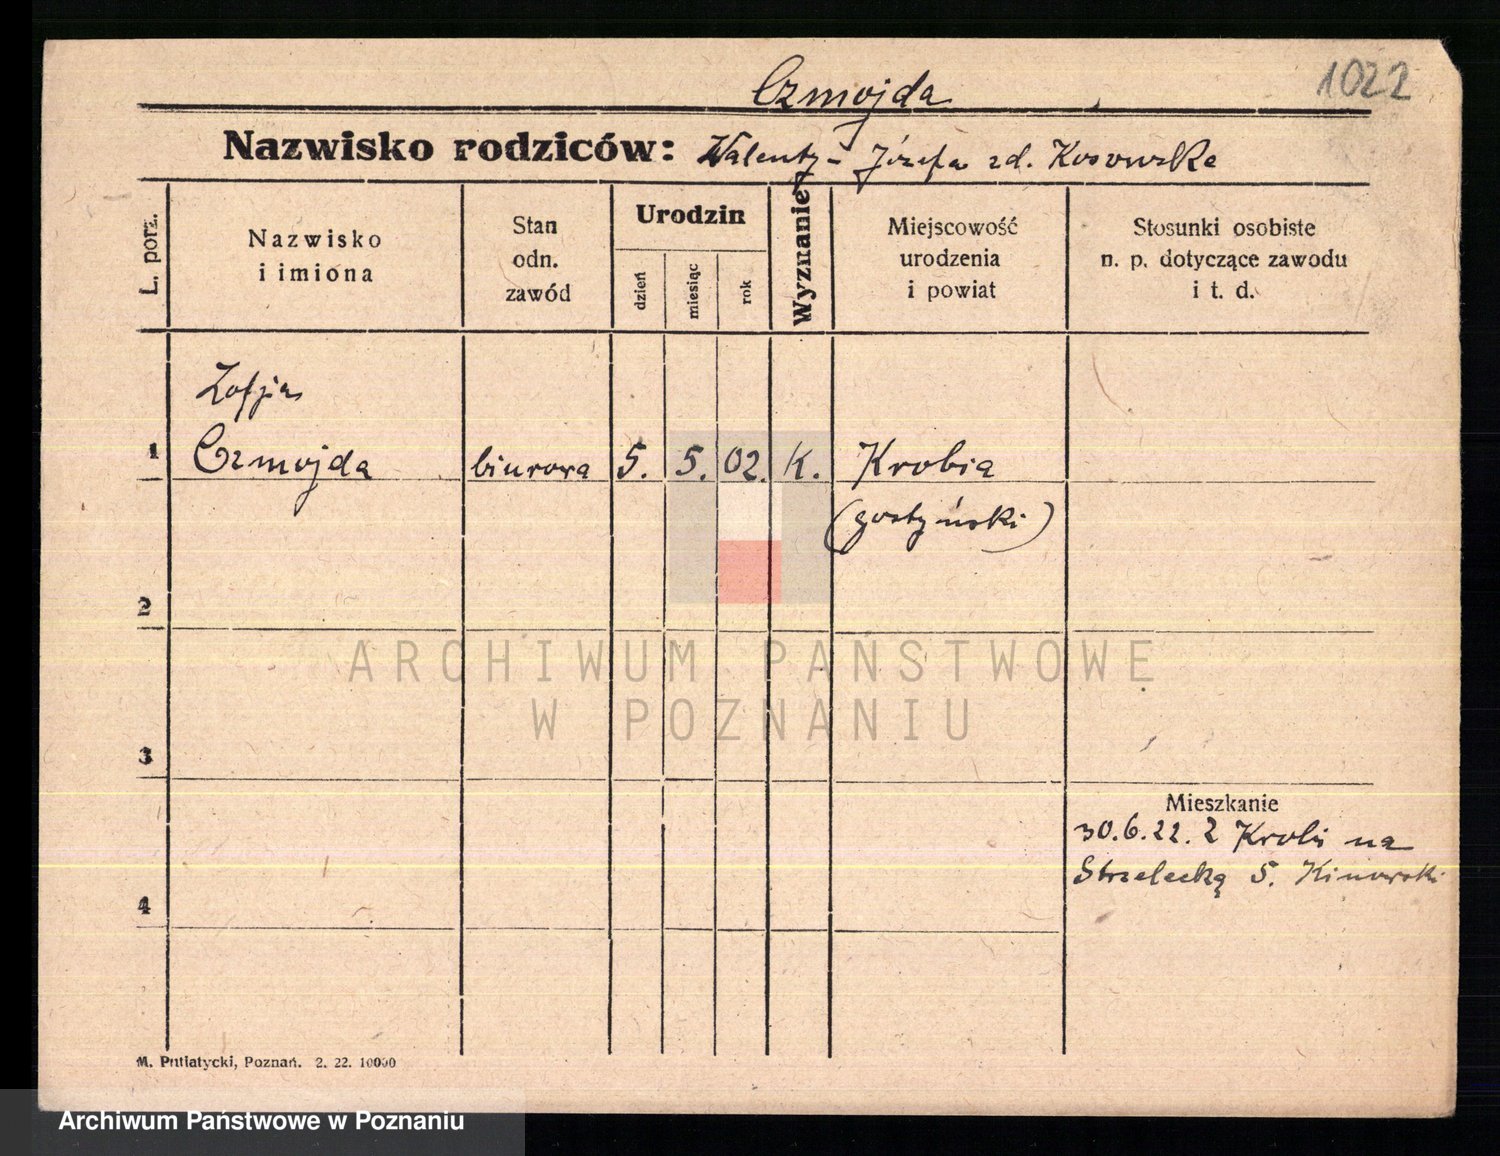 1022
Czmojda
Nazwisko rodziców: Walenty - Józefa zd. Kosowska
L. porz.
Nazwisko
i imiona
Stan
odn.
zawód
Urodzin
dzień
miesiąc
rok
Wyznanie
Miejscowość
urodzenia
i powiat
Stosunki osobiste
n. p. dotyczące zawodu
i t. d.
Zofja
1 Czmojda biurowa 5. 5. 02. K. Krobia
(gostyński)
2
ARCHIWUM PAŃSTWOWE
W POZNANIU
3
Mieszkanie
30.6.22. z Krobi na
Strzelecką 5. Kinowski
4
M. Putiatycki, Poznań. 2. 22. 10000
Archiwum Państwowe w Poznaniu